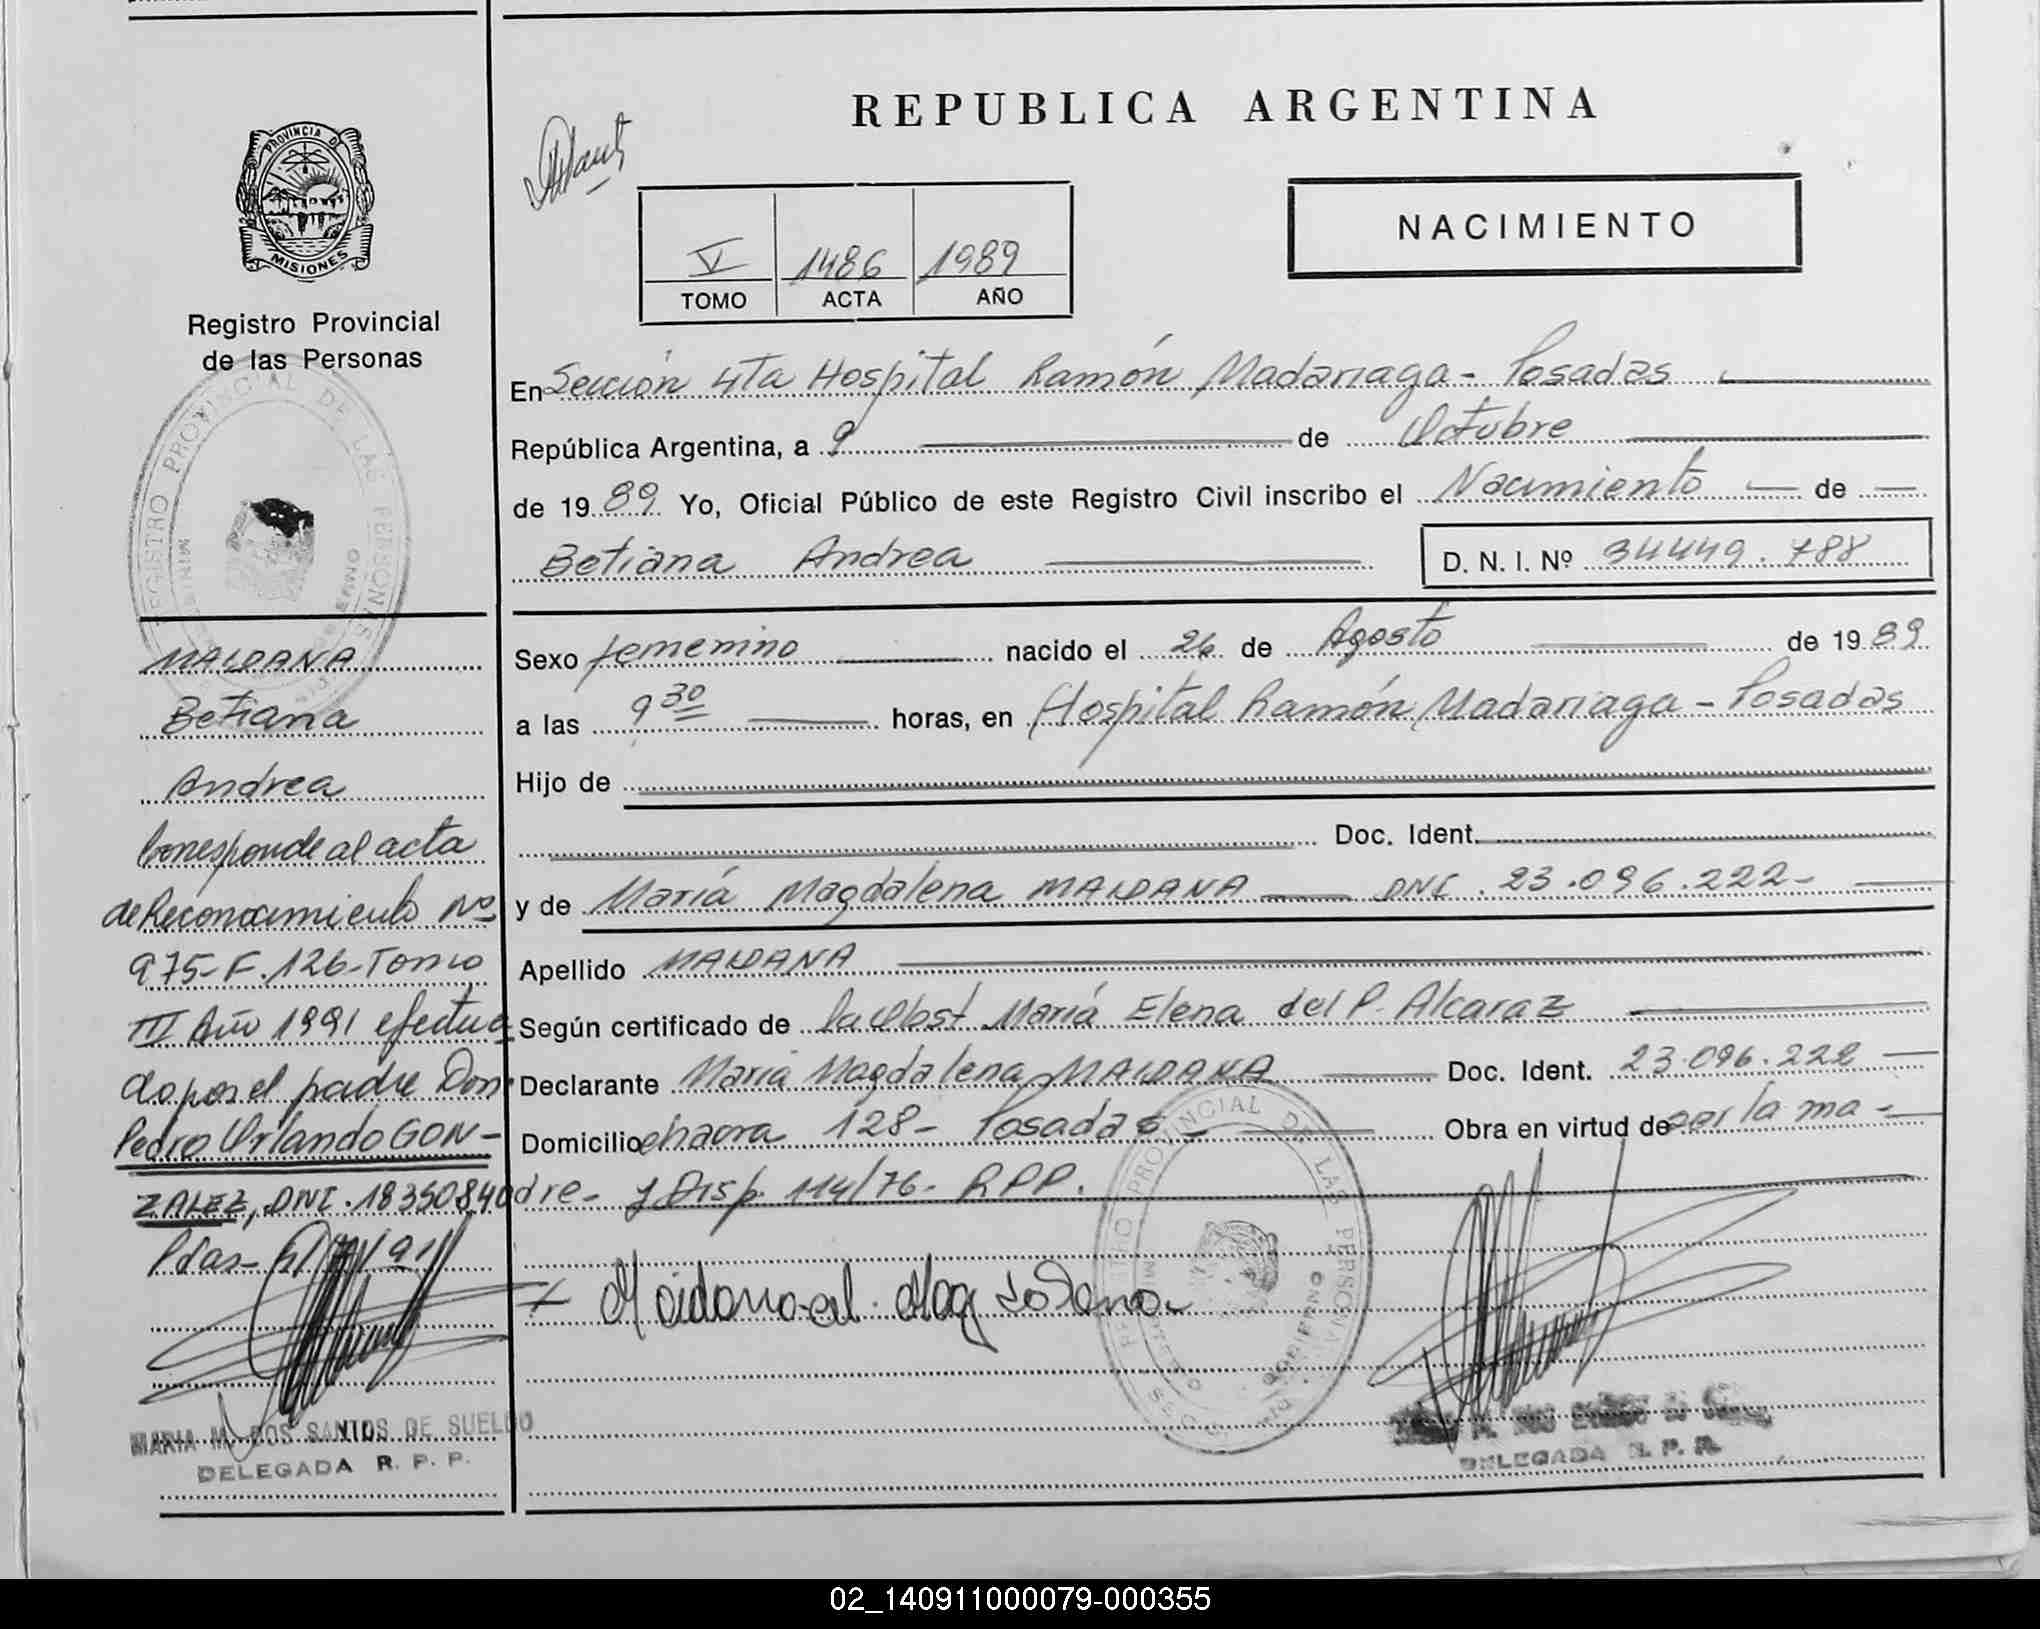 REPUBLICA ARGENTINA
PROVINCIA DE
MISIONES
Registro Provincial
de las Personas
V 1486 1989
TOMO ACTA AÑO
NACIMIENTO
En Sección 4Ta Hospital Ramón Madariaga - Posadas
República Argentina, a 9 de Octubre
de 1989 Yo, Oficial Público de este Registro Civil inscribo el Nacimiento de
Betiana Andrea
D. N. I. Nº 34449.788
Sexo femenino nacido el 26 de Agosto de 1989
a las 9 30 horas, en Hospital Ramón Madariaga - Posadas
Hijo de
Doc. Ident.
y de María Magdalena MAIDANA DNI. 23.096.222-
Apellido MAIDANA
Según certificado de la Obst María Elena del P. Alcaraz
Declarante María Magdalena MAIDANA Doc. Ident. 23.096.222
Domicilio chacra 128 - Posadas - Obra en virtud de por la ma-
dre - y Disp. 114/76 - RPP.
MAIDANA
Betiana
Andrea
Corresponde al acta
de Reconocimiento Nº
975-F.126-Tomo
III Año 1991 efectua
do por el padre Don
Pedro Orlando GON-
ZALEZ, DNI. 18350840
Pdas-
MARIA M. DOS SANTOS DE SUELDO
DELEGADA R. P. P.
REGISTRO PROVINCIAL DE LAS PERSONAS
REGISTRO PROVINCIAL DE LAS PERSONAS
DELEGADA R. P. P.
02_140911000079-000355